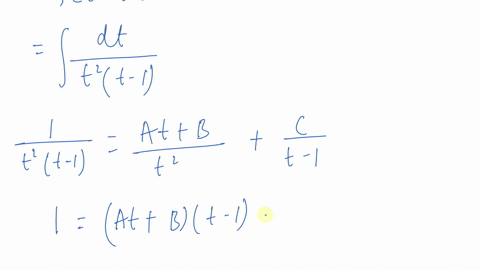 = ∫ dt / t²(t-1)
1 / t²(t-1) = At+B / t² + C / t-1
1 = (At+B)(t-1)